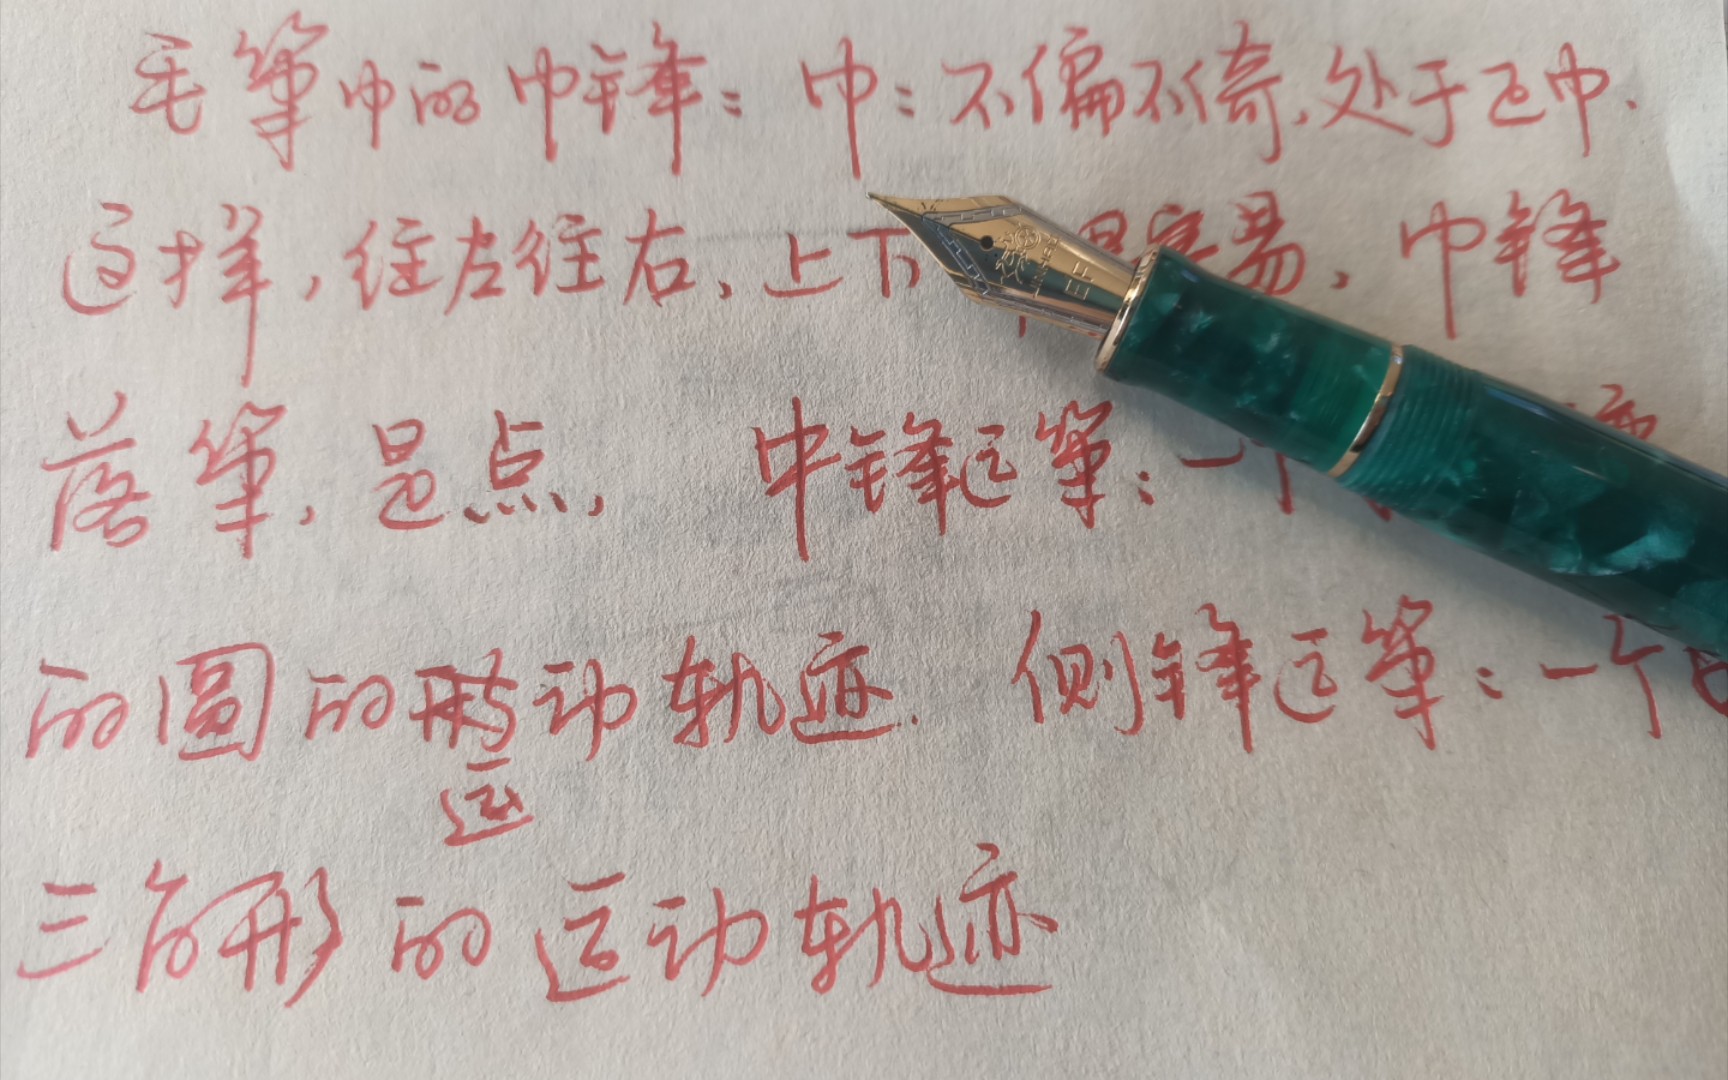 毛笔中的中锋：中：不偏不倚，处于正中．
这样，往左往右，上下 很容易，中锋
落笔，是点， 中锋运笔：一个
的圆的形动轨迹． 侧锋运笔：一个
运
三角形的运动轨迹
EF